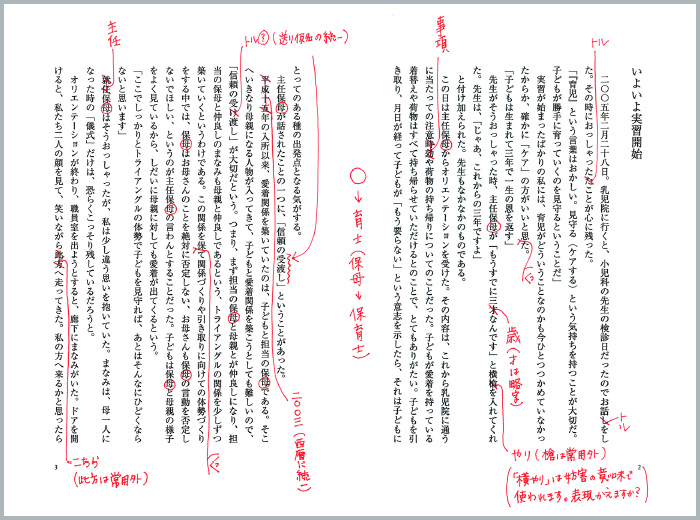 いよいよ実習開始
二〇〇五年二月二十八日。乳児院に行くと、小児科の先生の検診日だったのでお話しをし
た。その時におっしゃったたことが心に残った。
「『育児』という言葉はおかしい。見守る(ケアする)という気持ちを持つことが大切だ。
子どもが勝手に育っていくのを見守るということだ」
実習が始まったばかりの私には、育児がどういうことなのかも今ひとつつかめていなかっ
たからか、確かに「ケア」の方がいいと思た。
「子どもは生まれて三年で一生の恩を返す」
先生がそうおっしゃった時、主任保母が「もうすでに三才なんです」と横槍を入れてくれ
た。先生は、「じゃあ、これからの三年ですよ」
と付け加えられた。先生もなかなかのものである。
この日は主任保母からオリエンテーションを受けた。その内容は、これから乳児院に通う
に当たっての注意時効や荷物の持ち帰りについてのことだった。子どもが愛着を持っている
着替えや荷物はすべて持ち帰らせていただけるとのことで、とてもありがたい。子どもを引
き取り、月日が経って子どもが「もう要らない」という意志を示したら、それは子どもに
2
トル
トル
っ
歳(才は略字)
やり(槍は常用外)
「横やり」は妨害の意味で
使われます。表現かえますか?
事項
○→育士(保母→保育士)
とってのある種の出発点となる気がする。
主任保母が話されたことの一つに、「信頼の受渡し」ということがあった。
平成十五年の入所以来、愛着関係を築いていたのは、子どもと担当の保母である。そこ
へいきなり母親になる人物が入ってきて、子どもと愛着関係を築こうとしても難しいので、
「信頼の受け渡し」が大切だという。つまり、まず担当の保母と母親とが仲良しになり、担
当の保母と仲良しのまなみも母親と仲良しであるという、トライアングルの関係を少しずつ
築いていくというわけである。この関係を保て関係づくりや引き取りに向けての体勢づくり
をする中では、保母はお母さんのことを絶対に否定しない、お母さんも保母の言動を否定し
ないでほしい、というのが主任保母の言わんとすることだった。子どもは保母と母親の様子
をよく見ているから、しだいに母親に対しても愛着が出てくるという。
「ここでしっかりとトライアングルの体勢で子どもを見守れば、あとはそんなにひどくなら
ないと思います」
就任保母はそうおっしゃったが、私は少し違う思いを抱いていた。まなみは、母一人に
なった時の「儀式」だけは、恐らくこっそり残しているだろうと。
オリエンテーションが終わり、職員室を出ようとすると、廊下にまなみがいた。ドアを開
けると、私たち二人の顔を見て、笑いながら此方へ走ってきた。私の方へ来るかと思ったら
3
トル?(送り仮名の統一)
二〇〇三(西暦に統一)
っ
主任
こちら
(此方は常用外)